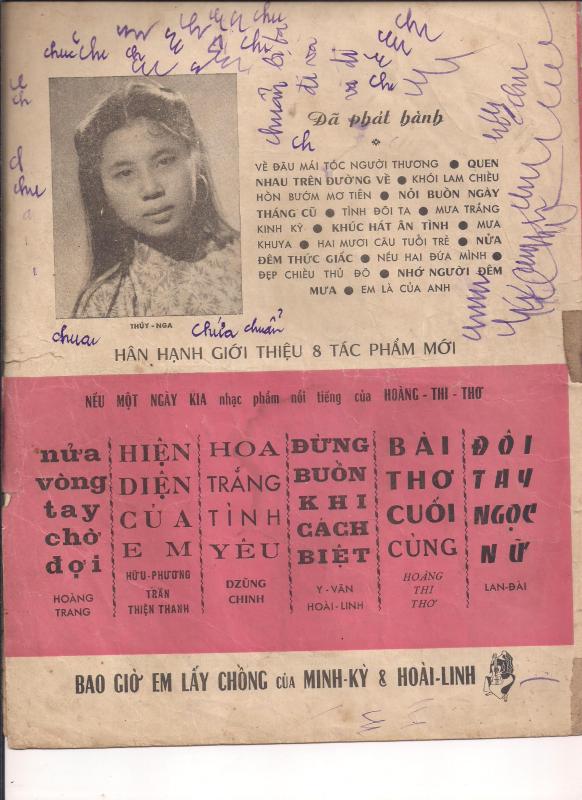 chu
chuẩn bị ba
đi va
và đi
chu
Đã phát hành
VỀ ĐÂU MÁI TÓC NGƯỜI THƯƠNG ● QUEN
NHAU TRÊN ĐƯỜNG VỀ ● KHÓI LAM CHIỀU
HỒN BƯỚM MƠ TIÊN ● NỖI BUỒN NGÀY
THÁNG CŨ ● TÌNH ĐÔI TA ● MƯA TRẮNG
KINH KỲ ● KHÚC HÁT ÂN TÌNH ● MƯA
KHUYA ● HAI MƯƠI CÂU TUỔI TRẺ ● NỬA
ĐÊM THỨC GIẤC ● NẾU HAI ĐỨA MÌNH ●
ĐẸP CHIỀU THỦ ĐÔ ● NHỚ NGƯỜI ĐÊM
MƯA ● EM LÀ CỦA ANH
THÚY - NGA
HÂN HẠNH GIỚI THIỆU 8 TÁC PHẨM MỚI
NẾU MỘT NGÀY KIA nhạc phẩm nổi tiếng của HOÀNG - THI - THƠ
nửa
vòng
tay
chờ
đợi
HOÀNG
TRANG
HIỆN
DIỆN
CỦA
EM
HỮU-PHƯƠNG
TRẦN
THIỆN THANH
HOA
TRẮNG
TÌNH
YÊU
DZŨNG
CHINH
ĐỪNG
BUỒN
KHI
CÁCH
BIỆT
Y - VÂN
HOÀI - LINH
BÀI
THƠ
CUỐI
CÙNG
HOÀNG
THI
THƠ
ĐÔI
TAY
NGỌC
NỮ
LAN-ĐÀI
BAO GIỜ EM LẤY CHỒNG CỦA MINH-KỲ & HOÀI-LINH